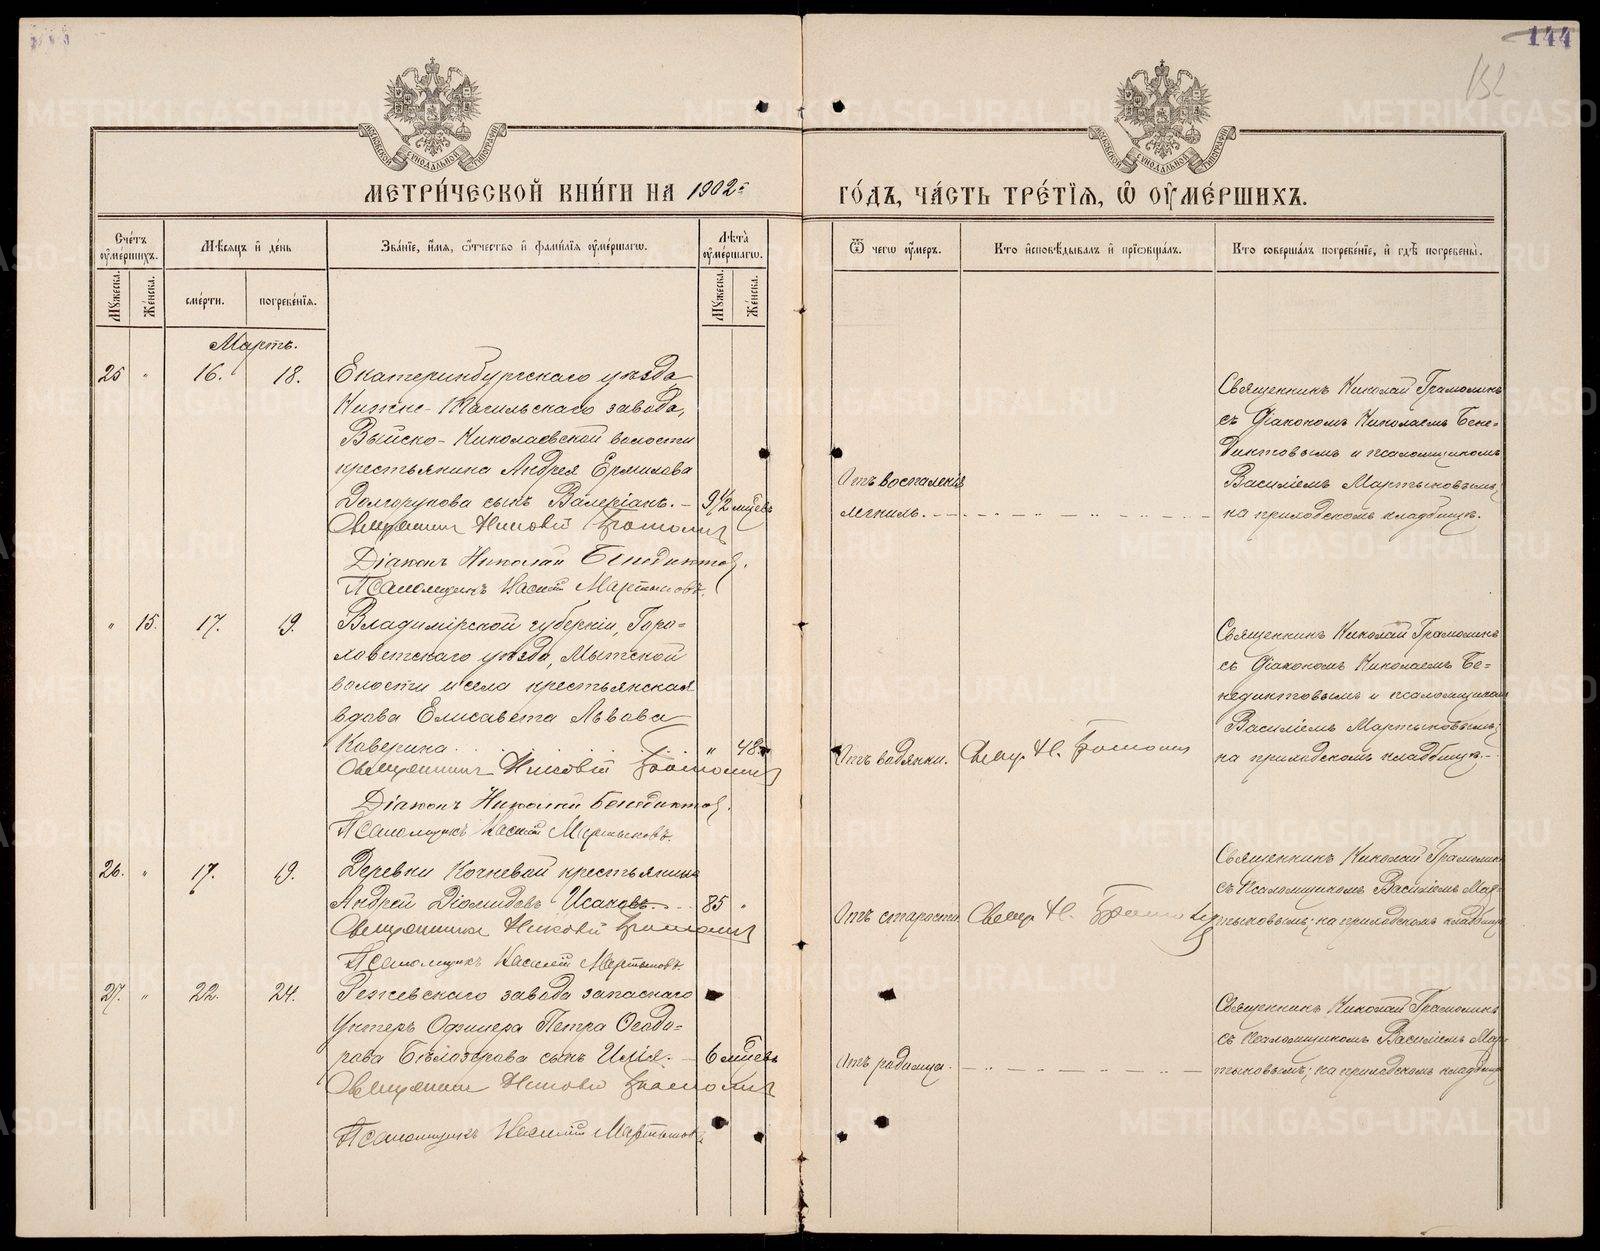 144
152
МЕТРИ́ЧЕСКОЙ КНИ́ГИ НА 1902 г.
ГО́ДЪ, ЧА́СТЬ ТРЕ́ТІѦ, Ѽ ОУ҆МЕ́РШИХЪ.
Сче́тъ оу҆ме́ршихъ.
Мѣ́сѧцъ и҆ де́нь
Зва́нїе, и҆́мѧ, ѻ҆́тчество и҆ фами́лїѧ оу҆ме́ршагѡ.
Лѣ́та оу҆ме́ршагѡ.
Ѿ чегѡ̀ оу҆́меръ.
Кто̀ и҆сповѣ́дывалъ и҆ прїѡбща́лъ.
Кто̀ соверша́лъ погребе́нїе, и҆ гдѣ̀ погребены̀.
Мꙋ́жеска.
Же́нска.
сме́рти.
погребе́нїѧ.
Мꙋ́жеска.
Же́нска.
Мартъ.
25 " 16. 18.
Екатеринбургскаго уѣзда,
Нижне-Тагильскаго завода,
Выйско-Николаевской волости
крестьянина Андрея Ермилова
Долгорукова сынъ Валеріанъ. 9 1/2 мѣцевъ
Священникъ Николай Грамолинъ
Діаконъ Николай Бенедиктовъ.
Псаломщикъ Василій Мартыновъ.
Отъ воспаленія
легкихъ.
Священникъ Николай Грамолинъ
съ Діакономъ Николаемъ Бене-
диктовымъ и псаломщикомъ
Василіемъ Мартыновымъ;
на приходскомъ кладбищѣ.
" 15. 17. 19.
Владимірской губерніи, Горо-
ховетскаго уѣзда, Мытской
волости и села крестьянская
вдова Елисавета Львова
Каверина. " 48
Священникъ Николай Грамолинъ
Діаконъ Николай Бенедиктовъ.
Псаломщикъ Василій Мартыновъ.
Отъ водянки.
Свящ. Н. Грамолинъ
Священникъ Николай Грамолинъ
съ Діакономъ Николаемъ Бе-
недиктовымъ и псаломщикомъ
Василіемъ Мартыновымъ;
на приходскомъ кладбищѣ.
26. " 17. 19.
Деревни Кочневой крестьянинъ
Андрей Діомидовъ Исаковъ. 85 "
Священникъ Николай Грамолинъ
Псаломщикъ Василій Мартыновъ.
Отъ старости.
Свящ. Н. Грамолинъ
Священникъ Николай Грамолинъ
съ псаломщикомъ Василіемъ Мар-
тыновымъ; на приходскомъ кладбищѣ
27. " 22. 24.
Режевскаго завода запаснаго
Унтеръ Офицера Петра Ѳеодо-
рова Бѣлозерова сынъ Илія. 6 мѣцевъ
Священникъ Николай Грамолинъ
Псаломщикъ Василій Мартыновъ
Отъ родимца.
Священникъ Николай Грамолинъ
съ псаломщикомъ Василіемъ Мар-
тыновымъ; на приходскомъ кладбищѣ
METRIKI.GASO-URAL.RU